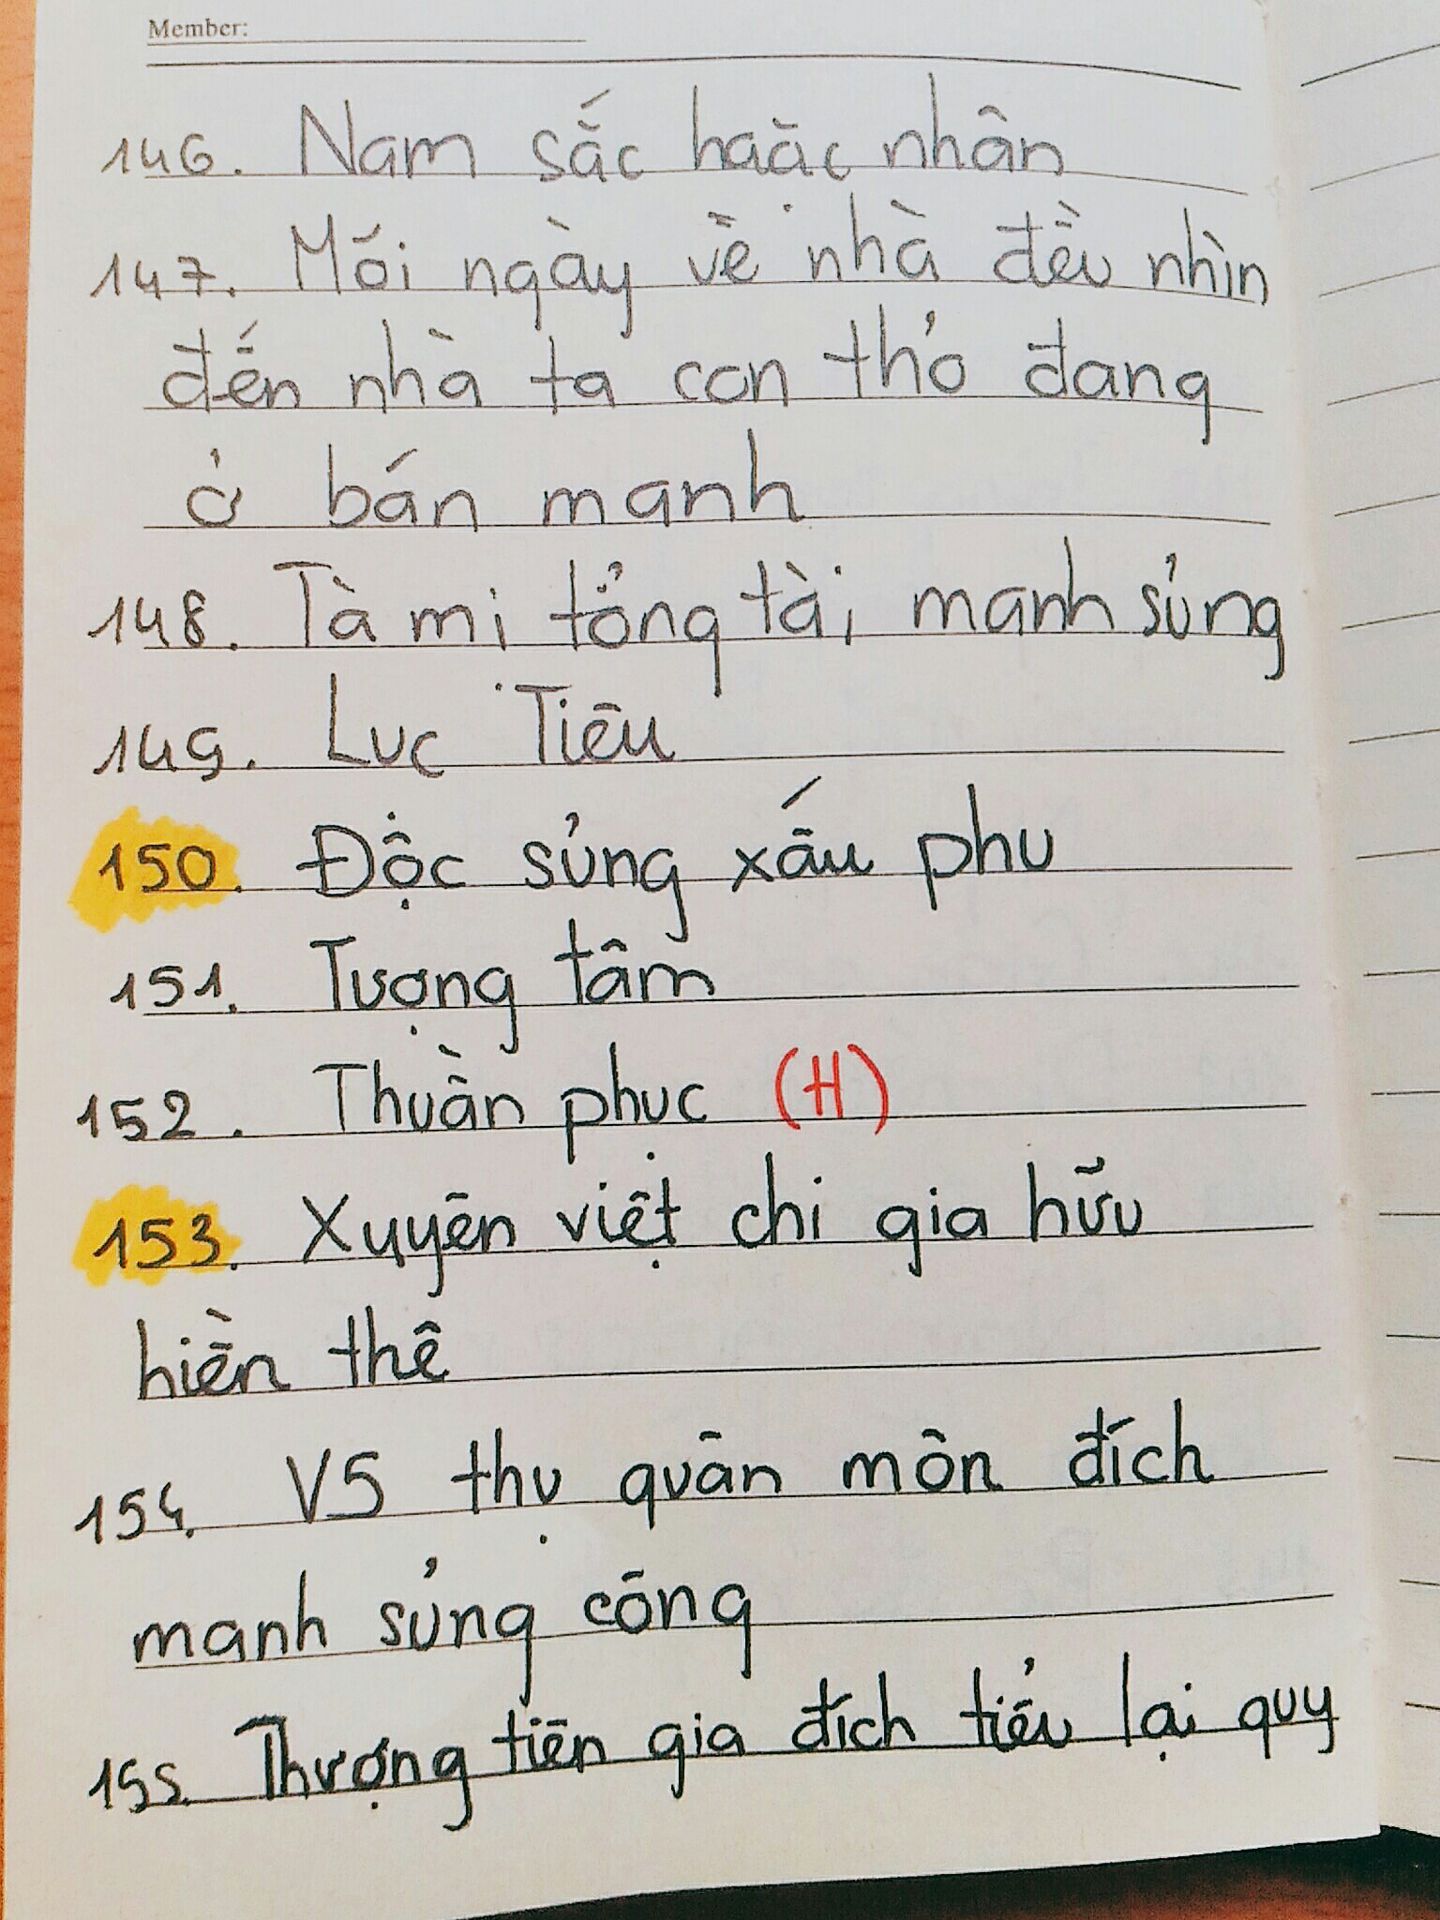 Member:
146. Nam sắc hoặc nhân
147. Mỗi ngày về nhà đều nhìn
đến nhà ta con thỏ đang
ở bán manh
148. Tà mị tổng tài manh sủng
149. Lục Tiêu
150. Độc sủng xấu phu
151. Tượng tâm
152. Thuần phục (H)
153. Xuyên việt chi gia hữu
hiền thê
154. VS thụ quân môn đích
manh sủng công
155. Thượng tiên gia đích tiểu lại quy